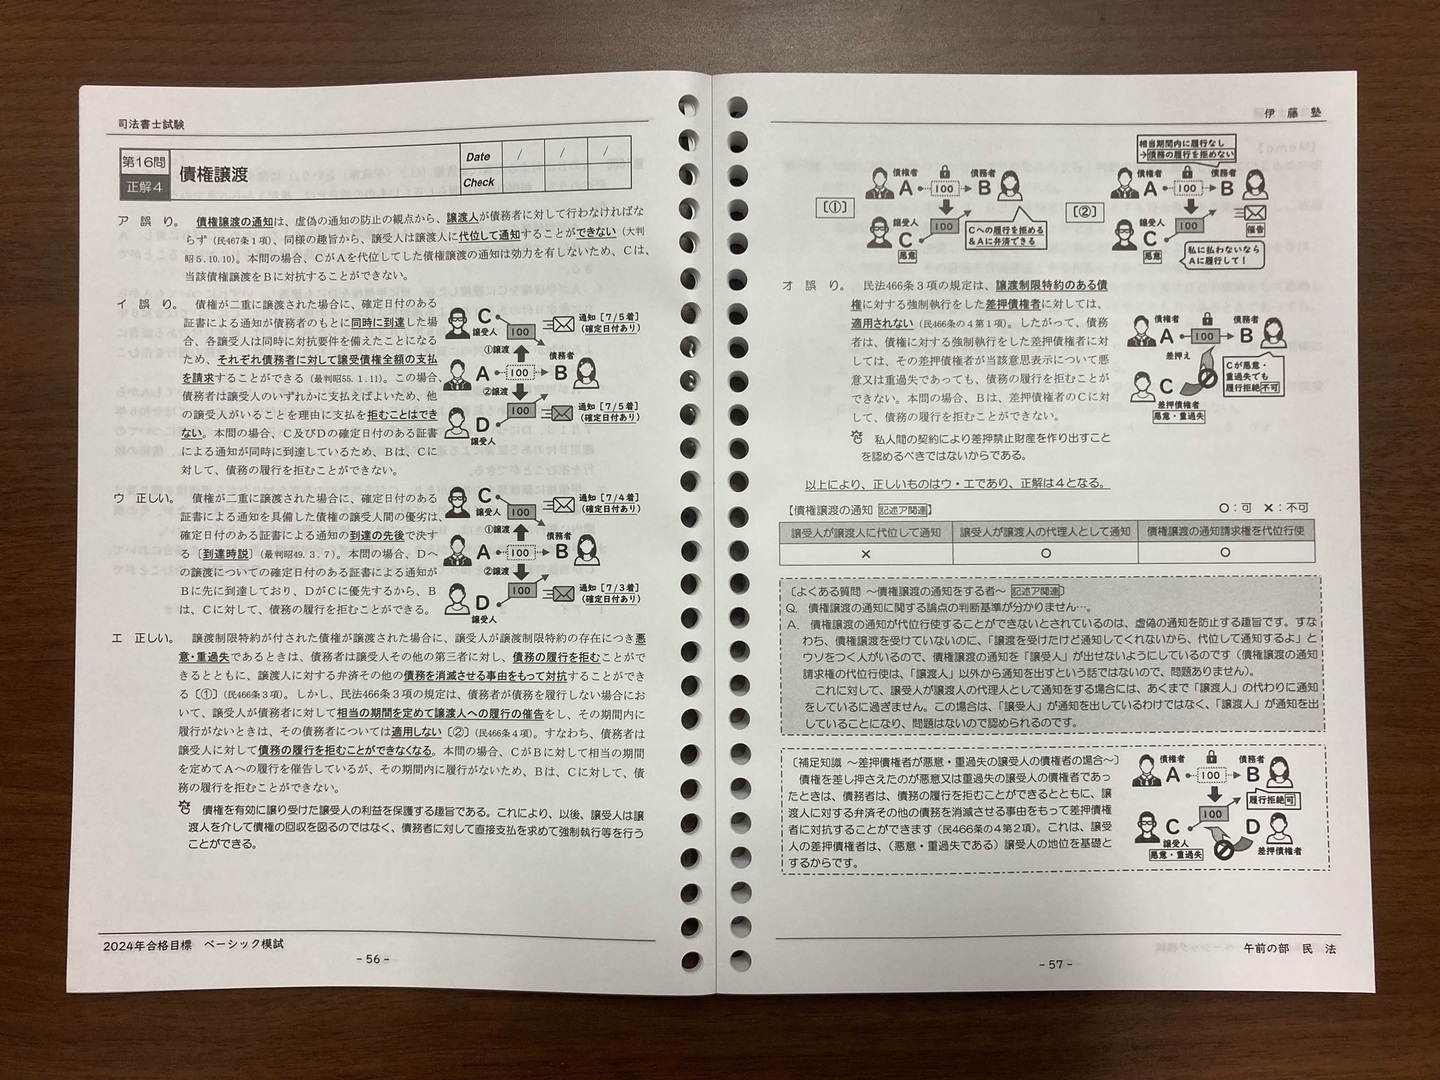 司法書士試験
第16問
正解4
債権譲渡
Date / / /
Check
ア 誤 り。 債権譲渡の通知は、虚偽の通知の防止の観点から、譲渡人が債務者に対して行わなければな
らず（民467条１項）、同様の趣旨から、譲受人は譲渡人に代位して通知することができない（大判
昭５.10.10）。本問の場合、ＣがＡを代位してした債権譲渡の通知は効力を有しないため、Ｃは、
当該債権譲渡をＢに対抗することができない。
イ 誤 り。 債権が二重に譲渡された場合に、確定日付のある
証書による通知が債務者のもとに同時に到達した場
合、各譲受人は同時に対抗要件を備えたことになる
ため、それぞれ債務者に対して譲受債権全額の支払
を請求することができる（最判昭55.１.11）。この場合、
債務者は譲受人のいずれかに支払えばよいため、他
の譲受人がいることを理由に支払を拒むことはでき
ない。本問の場合、Ｃ及びＤの確定日付のある証書
による通知が同時に到達しているため、Ｂは、Ｃに
対して、債務の履行を拒むことができない。
C
譲受人
100
通知［7/5着］
（確定日付あり）
①譲渡
債務者
A
100
B
②譲渡
100
通知［7/5着］
（確定日付あり）
D
譲受人
ウ 正しい。 債権が二重に譲渡された場合に、確定日付のある
証書による通知を具備した債権の譲受人間の優劣は、
確定日付のある証書による通知の到達の先後で決す
る〔到達時説〕（最判昭49.３.７）。本問の場合、Ｄへ
の譲渡についての確定日付のある証書による通知が
Ｂに先に到達しており、ＤがＣに優先するから、Ｂ
は、Ｃに対して、債務の履行を拒むことができる。
C
譲受人
100
通知［7/4着］
（確定日付あり）
①譲渡
債務者
A
100
B
②譲渡
100
通知［7/3着］
（確定日付あり）
D
譲受人
エ 正しい。 譲渡制限特約が付された債権が譲渡された場合に、譲受人が譲渡制限特約の存在につき悪
意・重過失であるときは、債務者は譲受人その他の第三者に対し、債務の履行を拒むことがで
きるとともに、譲渡人に対する弁済その他の債務を消滅させる事由をもって対抗することができ
る〔①〕（民466条３項）。しかし、民法466条３項の規定は、債務者が債務を履行しない場合にお
いて、譲受人が債務者に対して相当の期間を定めて譲渡人への履行の催告をし、その期間内に
履行がないときは、その債務者については適用しない〔②〕（民466条４項）。すなわち、債務者は
譲受人に対して債務の履行を拒むことができなくなる。本問の場合、ＣがＢに対して相当の期間
を定めてＡへの履行を催告しているが、その期間内に履行がないため、Ｂは、Ｃに対して、債
務の履行を拒むことができない。
債権を有効に譲り受けた譲受人の利益を保護する趣旨である。これにより、以後、譲受人は譲
渡人を介して債権の回収を図るのではなく、債務者に対して直接支払を求めて強制執行等を行う
ことができる。
2024年合格目標 ベーシック模試
- 56 -
伊 藤 塾
［①］
債権者
A
100
債務者
B
譲受人
C
悪意
100
Cへの履行を拒める
＆Aに弁済できる
［②］
相当期間内に履行なし
→債務の履行を拒めない
債権者
A
100
債務者
B
譲受人
C
悪意
100
催告
私に払わないなら
Aに履行して！
オ 誤 り。 民法466条３項の規定は、譲渡制限特約のある債
権に対する強制執行をした差押債権者に対しては、
適用されない（民466条の４第１項）。したがって、債務
者は、債権に対する強制執行をした差押債権者に対
しては、その差押債権者が当該意思表示について悪
意又は重過失であっても、債務の履行を拒むことが
できない。本問の場合、Ｂは、差押債権者のＣに対
して、債務の履行を拒むことができない。
私人間の契約により差押禁止財産を作り出すこと
を認めるべきではないからである。
債権者
A
100
債務者
B
差押え
C
差押債権者
悪意・重過失
Cが悪意・
重過失でも
履行拒絶不可
以上により、正しいものはウ・エであり、正解は４となる。
【債権譲渡の通知 記述ア関連】
○：可 ×：不可
譲受人が譲渡人に代位して通知 譲受人が譲渡人の代理人として通知 債権譲渡の通知請求権を代位行使
× ○ ○
〔よくある質問 〜債権譲渡の通知をする者〜 記述ア関連〕
Ｑ．債権譲渡の通知に関する論点の判断基準が分かりません…。
Ａ．債権譲渡の通知が代位行使することができないとされているのは、虚偽の通知を防止する趣旨です。すな
わち、債権譲渡を受けていないのに、「譲渡を受けたけど通知してくれないから、代位して通知するよ」と
ウソをつく人がいるので、債権譲渡の通知を「譲受人」が出せないようにしているのです（債権譲渡の通知
請求権の代位行使は、「譲渡人」以外から通知を出すという話ではないので、問題ありません）。
これに対して、譲受人が譲渡人の代理人として通知をする場合には、あくまで「譲渡人」の代わりに通知
をしているに過ぎません。この場合は、「譲受人」が通知を出しているわけではなく、「譲渡人」が通知を出
していることになり、問題はないので認められるのです。
〔補足知識 〜差押債権者が悪意・重過失の譲受人の債権者の場合〜〕
債権を差し押さえたのが悪意又は重過失の譲受人の債権者であっ
たときは、債務者は、債務の履行を拒むことができるとともに、譲
渡人に対する弁済その他の債務を消滅させる事由をもって差押債権
者に対抗することができます（民466条の４第２項）。これは、譲受
人の差押債権者は、（悪意・重過失である）譲受人の地位を基礎と
するからです。
債権者
A
100
債務者
B
履行拒絶可
C
100
D
譲受人
悪意・重過失
差押債権者
午前の部 民 法
- 57 -